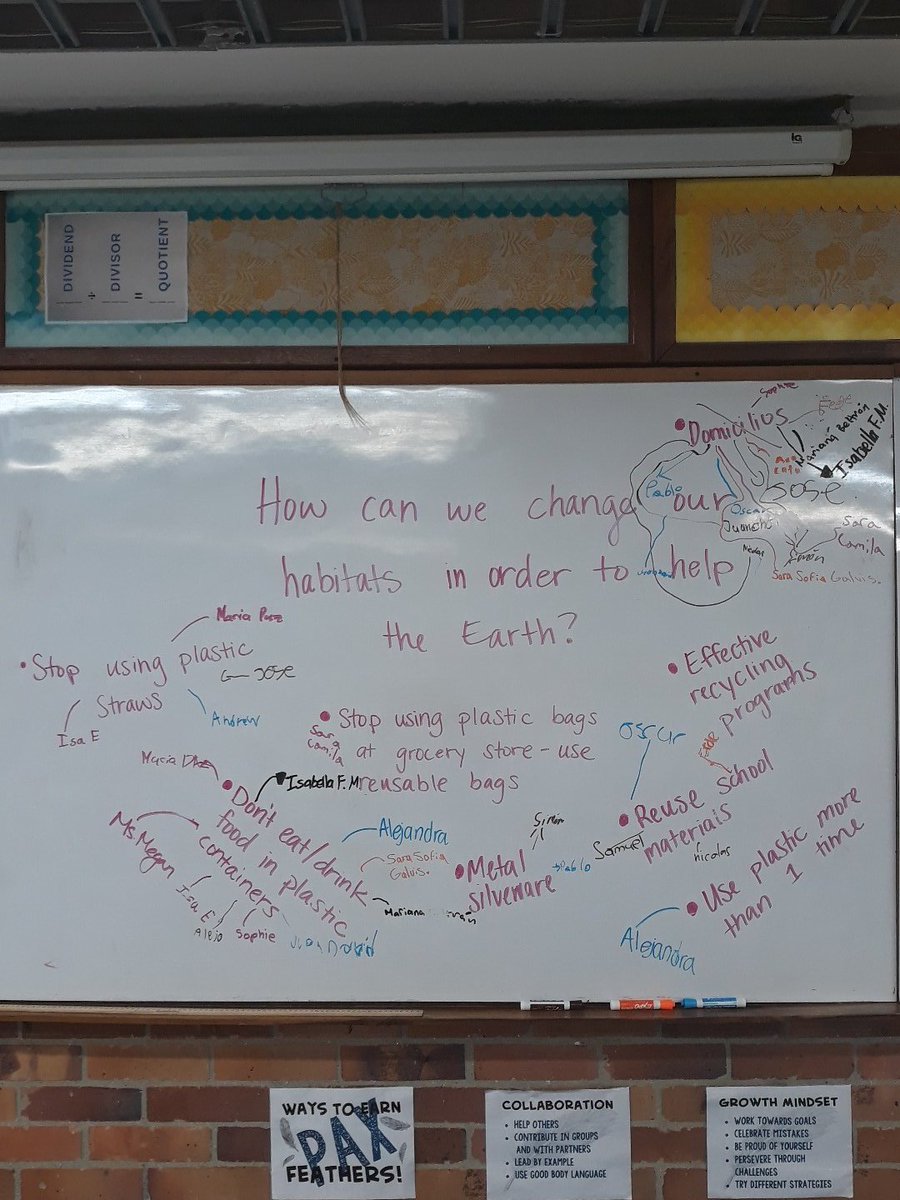 DIVIDEND
÷
DIVISOR
=
QUOTIENT
Sophie
• Domicilios
Mariana Beltrán
Isabella F.M
Pablo
Jose
Oscar
Juancho
Sara
Camila
Simón
Sara Sofia Galvis.
How can we change our
habitats in order to help
the Earth?
Maria Paz
• Stop using plastic
straws
Jose
Isa E
Andrew
• Stop using plastic bags
at grocery store - use
reusable bags
Sara
Camila
Isabella F.M
• Effective
recycling
programs
Oscar
• Reuse school
materials
Samuel
nicolas
• Don't eat/drink
food in plastic
containers
Ms Megan
Isa E
Alejo
Sophie
Juan David
Alejandra
Sara Sofia
Galvis.
Mariana
• Metal
silverware
Simón
Pablo
• Use plastic more
than 1 time
Alejandra
WAYS TO EARN
PAX
FEATHERS!
COLLABORATION
• HELP OTHERS
• CONTRIBUTE IN GROUPS
AND WITH PARTNERS
• LEAD BY EXAMPLE
• USE GOOD BODY LANGUAGE
GROWTH MINDSET
• WORK TOWARDS GOALS
• CELEBRATE MISTAKES
• BE PROUD OF YOURSELF
• PERSEVERE THROUGH
CHALLENGES
• TRY DIFFERENT STRATEGIES